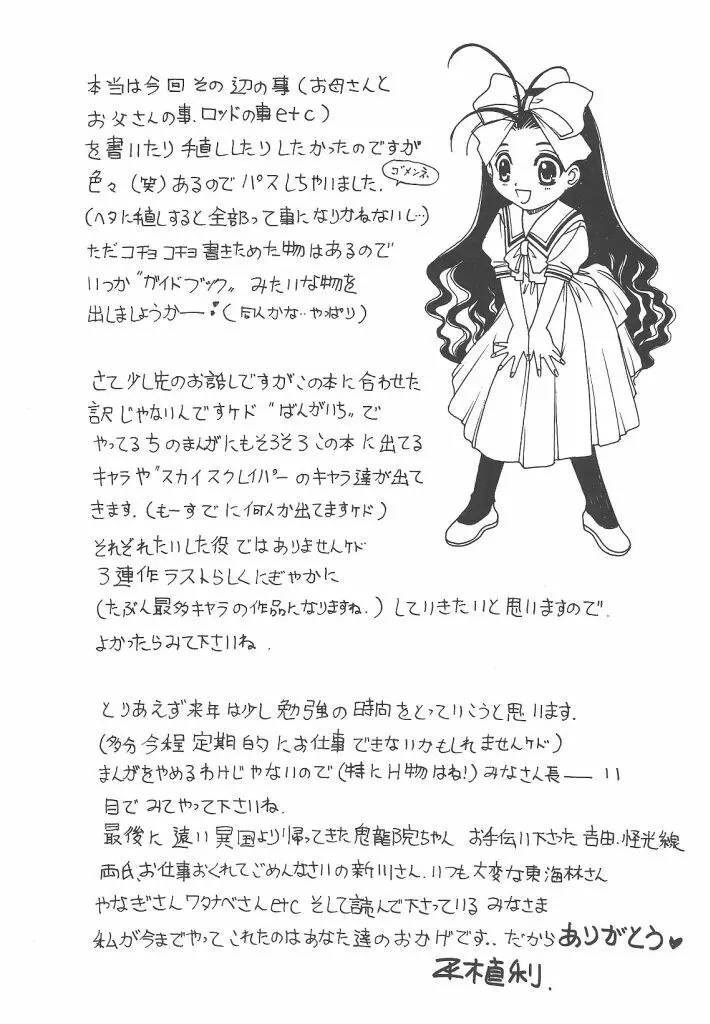 本当は今回その辺の事(お母さんと
お父さんの事、ロッドの事etc)
を書いたり直ししたりしたかったのですが
色々(笑)あるのでパスしちゃいました.
ゴメンネ
(ヘタに直しすると全部って事になりかねないし…)
ただコチョコチョ書きためた物はあるので
いつか〝ガイドブック〟みたいな物を
出しましょうかー・(同人かな…やっぱり)
さて少し先のお話しですがこの本に合わせた
訳じゃないんですケド〝ばんがいち〟で
やってるちのまんがにもそろそろこの本に出てる
キャラや〝スカイスクレイパーのキャラ達が出て
きます.(もーすでに何人か出てますケド)
それぞれたいした役ではありませんケド
3連作ラストらしくにぎやかに
(たぶん最多キャラの作品になりますね.)していきたいと思いますので.
よかったらみて下さいね.
とりあえず来年は少し勉強の時間をとっていこうと思います.
(多分今程定期的にお仕事できないかもしれませんケド)
まんがをやめるわけじゃないので(特にH物はね!)みなさん長——い
目でみてやって下さいね.
最後に遠い異国より帰ってきた鬼龍院ちゃん お手伝い下さった吉田.怪光線
両氏、お仕事おくれてごめんなさいの新川さん.いつも大変な東海林さん
やなぎさんワタナベさんetc そして読んで下さっているみなさま
私が今までやってこれたのはあなた達のおかげです..だからありがとう♥
平木直利.